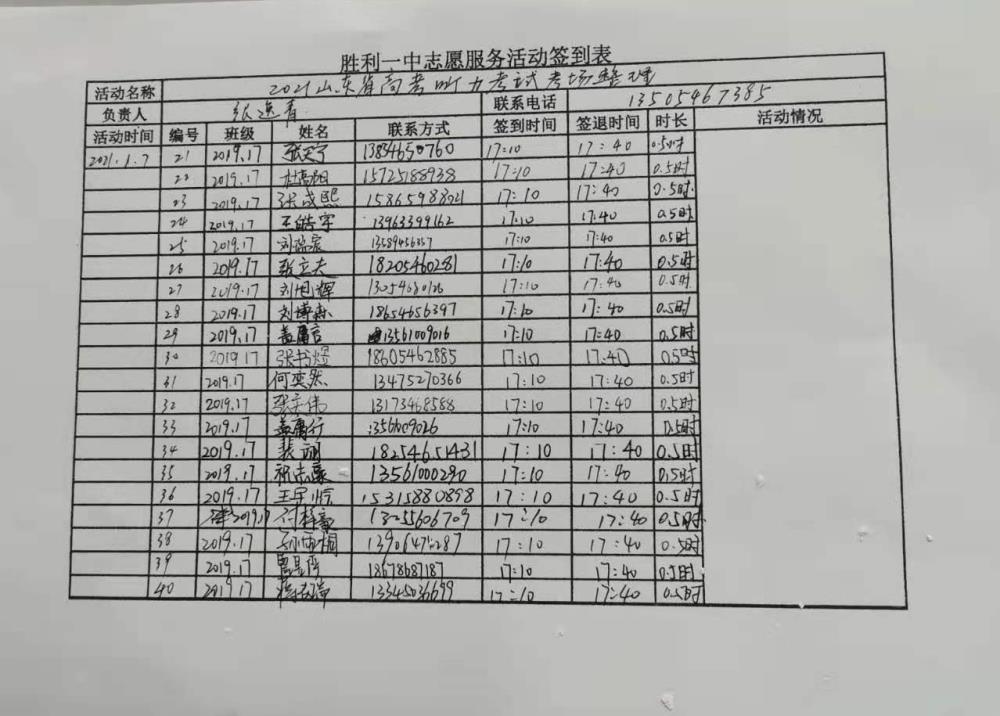 胜利一中志愿服务活动签到表
活动名称 2021山东省高考听力考试考场整理
负责人 张逸青 联系电话 13505467385
活动时间 编号 班级 姓名 联系方式 签到时间 签退时间 时长 活动情况
2021.1.7 21 2019.17 张天宁 13854650760 17:10 17:40 0.5时
22 2019.17 杜高阳 15725188938 17:10 17:40 0.5时
23 2019.17 张成熙 15865988021 17:10 17:40 0.5时
24 2019.17 王皓宇 13963399162 17:10 17:40 0.5时
25 2019.17 刘瑞宸 17:10 17:40 0.5时
26 2019.17 张立夫 18205460281 17:10 17:40 0.5时
27 2019.17 刘旭辉 13054680126 17:10 17:40 0.5时
28 2019.17 刘博森 18654656397 17:10 17:40 0.5时
29 2019.17 盖庸言 13561009016 17:10 17:40 0.5时
30 2019.17 张书煜 18605462885 17:10 17:40 0.5时
31 2019.17 何奕然 13475270366 17:10 17:40 0.5时
32 2019.17 张宏伟 13173468588 17:10 17:40 0.5时
33 2019.17 盖庸行 17:10 17:40 0.5时
34 2019.17 裴翊 18254651431 17:10 17:40 0.5时
35 2019.17 祝志豪 13561000290 17:10 17:40 0.5时
36 2019.17 王宇恒 15315880898 17:10 17:40 0.5时
37 2019.17 17:10 17:40 0.5时
38 2019.17 17:10 17:40 0.5时
39 2019.17 17:10 17:40 0.5时
40 2019.17 13345036699 17:10 17:40 0.5时